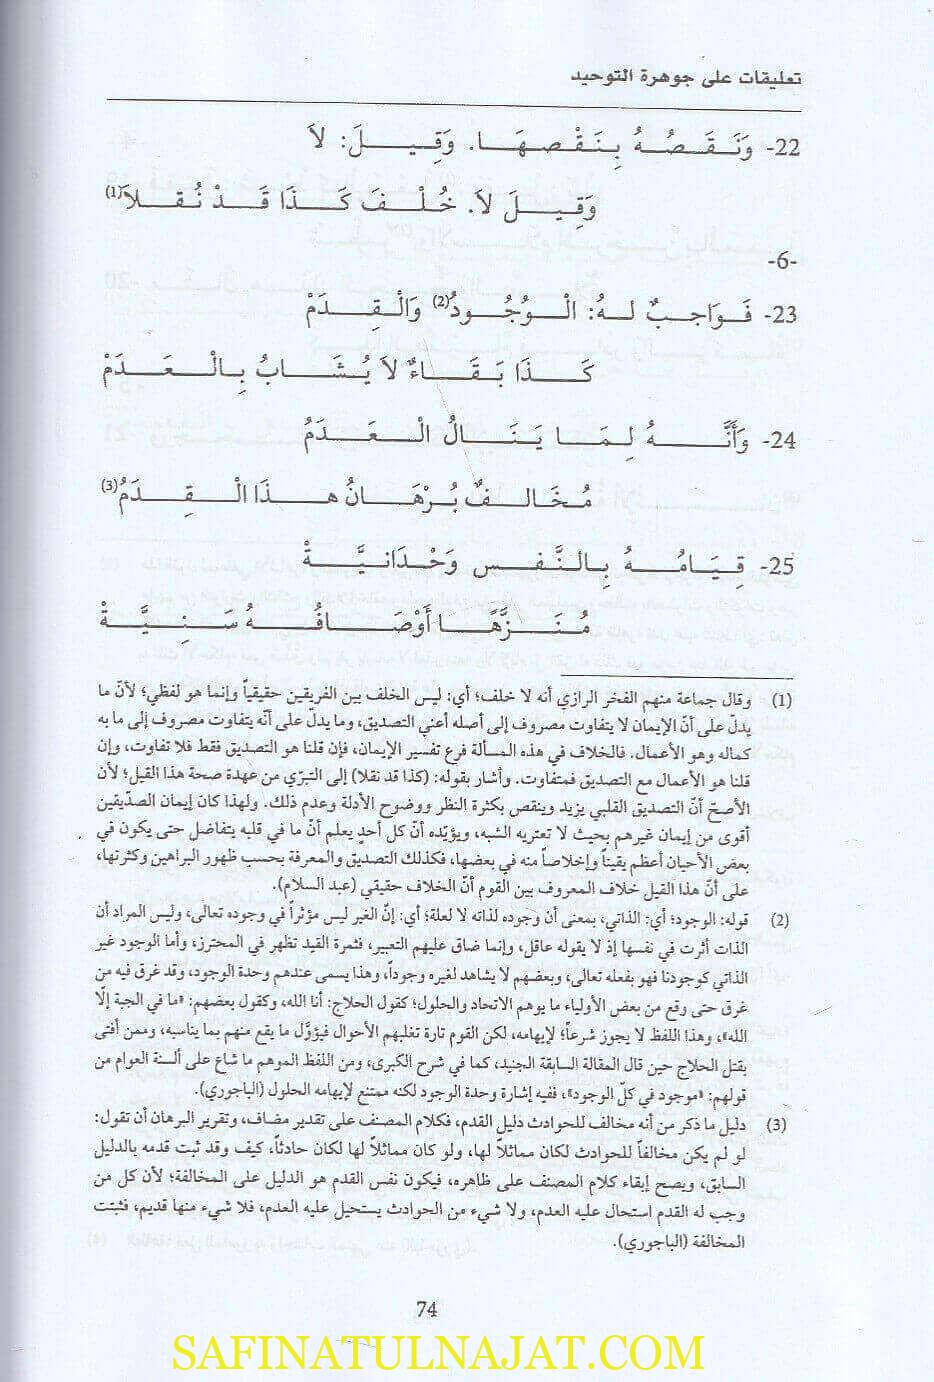 تعليقات على جوهرة التوحيد
22- وَنَقَصُهُ بِنَقْصِهَا. وَقِيلَ: لاَ
وَقِيلَ لاَ. خُلْفَ كَذَا قَدْ نُقلاَ(1)
-6-
23- فَوَاجبٌ له: الْوُجُودُ(2) وَالْقِدَمْ
كَذَا بَقَاءٌ لاَ يُشَابُ بِالْعَدَمْ
24- وَأَنَّهُ لِمَا يَنَالُ الْعَدَمُ
مُخَالفٌ بُرْهَانُ هذَا الْقِدَمُ(3)
25- قِيَامُهُ بِالنَّفسِ وَحْدَانيَّةْ
مُنَزَّهًا أَوْصَافُهُ سَنِيَّةْ
(1) وقال جماعة منهم الفخر الرازي أنه لا خلف؛ أي: ليس الخلف بين الفريقين حقيقياً وإنما هو لفظي؛ لأنّ ما
يدلّ على أنّ الإيمان لا يتفاوت مصروف إلى أصله أعني التصديق، وما يدلّ على أنّه يتفاوت مصروف إلى ما به
كماله وهو الأعمال. فالخلاف في هذه المسألة فرع تفسير الإيمان، فإن قلنا هو التصديق فقط فلا تفاوت، وإن
قلنا هو الأعمال مع التصديق فمتفاوت. وأشار بقوله: (كذا قد نقلا) إلى التبرّي من عهدة صحة هذا القيل؛ لأن
الأصحّ أنّ التصديق القلبي يزيد وينقص بكثرة النظر ووضوح الأدلة وعدم ذلك. ولهذا كان إيمان الصدّيقين
أقوى من إيمان غيرهم بحيث لا تعتريه الشبه، ويؤيّده أن كل أحدٍ يعلم أنّ ما في قلبه يتفاضل حتى يكون في
بعض الأحيان أعظم يقيناً وإخلاصاً منه في بعضها، فكذلك التصديق والمعرفة بحسب ظهور البراهين وكثرتها،
على أنّ هذا القيل خلاف المعروف بين القوم أنّ الخلاف حقيقي (عبد السلام).
(2) قوله: الوجود؛ أي: الذاتي، بمعنى أن وجوده لذاته لا لعلة؛ أي: إنّ الغير ليس مؤثراً في وجوده تعالى، وليس المراد أن
الذات أثرت في نفسها إذ لا يقوله عاقل، وإنما ضاق عليهم التعبير، فثمرة القيد تظهر في المحترز، وأما الوجود غير
الذاتي كوجودنا فهو بفعله تعالى، وبعضهم لا يشاهد لغيره وجوداً، وهذا يسمى عندهم وحدة الوجود، وقد غرق فيه من
غرق حتى وقع من بعض الأولياء ما يوهم الاتحاد والحلول؛ كقول الحلاج: أنا الله، وكقول بعضهم: «ما في الجبة إلّا
الله»، وهذا اللفظ لا يجوز شرعاً؛ لإيهامه، لكن القوم تارة تغلبهم الأحوال فيؤوّل ما يقع منهم بما يناسبه، وممن أفتى
بقتل الحلاج حين قال المقالة السابقة الجنيد، كما في شرح الكبرى، ومن اللفظ الموهم ما شاع على ألسنة العوام من
قولهم: «موجود في كلّ الوجود»، ففيه إشارة وحدة الوجود لكنه ممتنع لإيهامه الحلول (الباجوري).
(3) دليل ما ذكر من أنه مخالف للحوادث دليل القدم، فكلام المصنف على تقدير مضاف، وتقرير البرهان أن تقول:
لو لم يكن مخالفاً للحوادث لكان مماثلاً لها، ولو كان مماثلاً لها لكان حادثاً، كيف وقد ثبت قدمه بالدليل
السابق، ويصح إبقاء كلام المصنف على ظاهره، فيكون نفس القدم هو الدليل على المخالفة؛ لأن كل من
وجب له القدم استحال عليه العدم، ولا شيء من الحوادث يستحيل عليه العدم، فلا شيء منها قديم، فثبتت
المخالفة (الباجوري).
74
SAFINATULNAJAT.COM